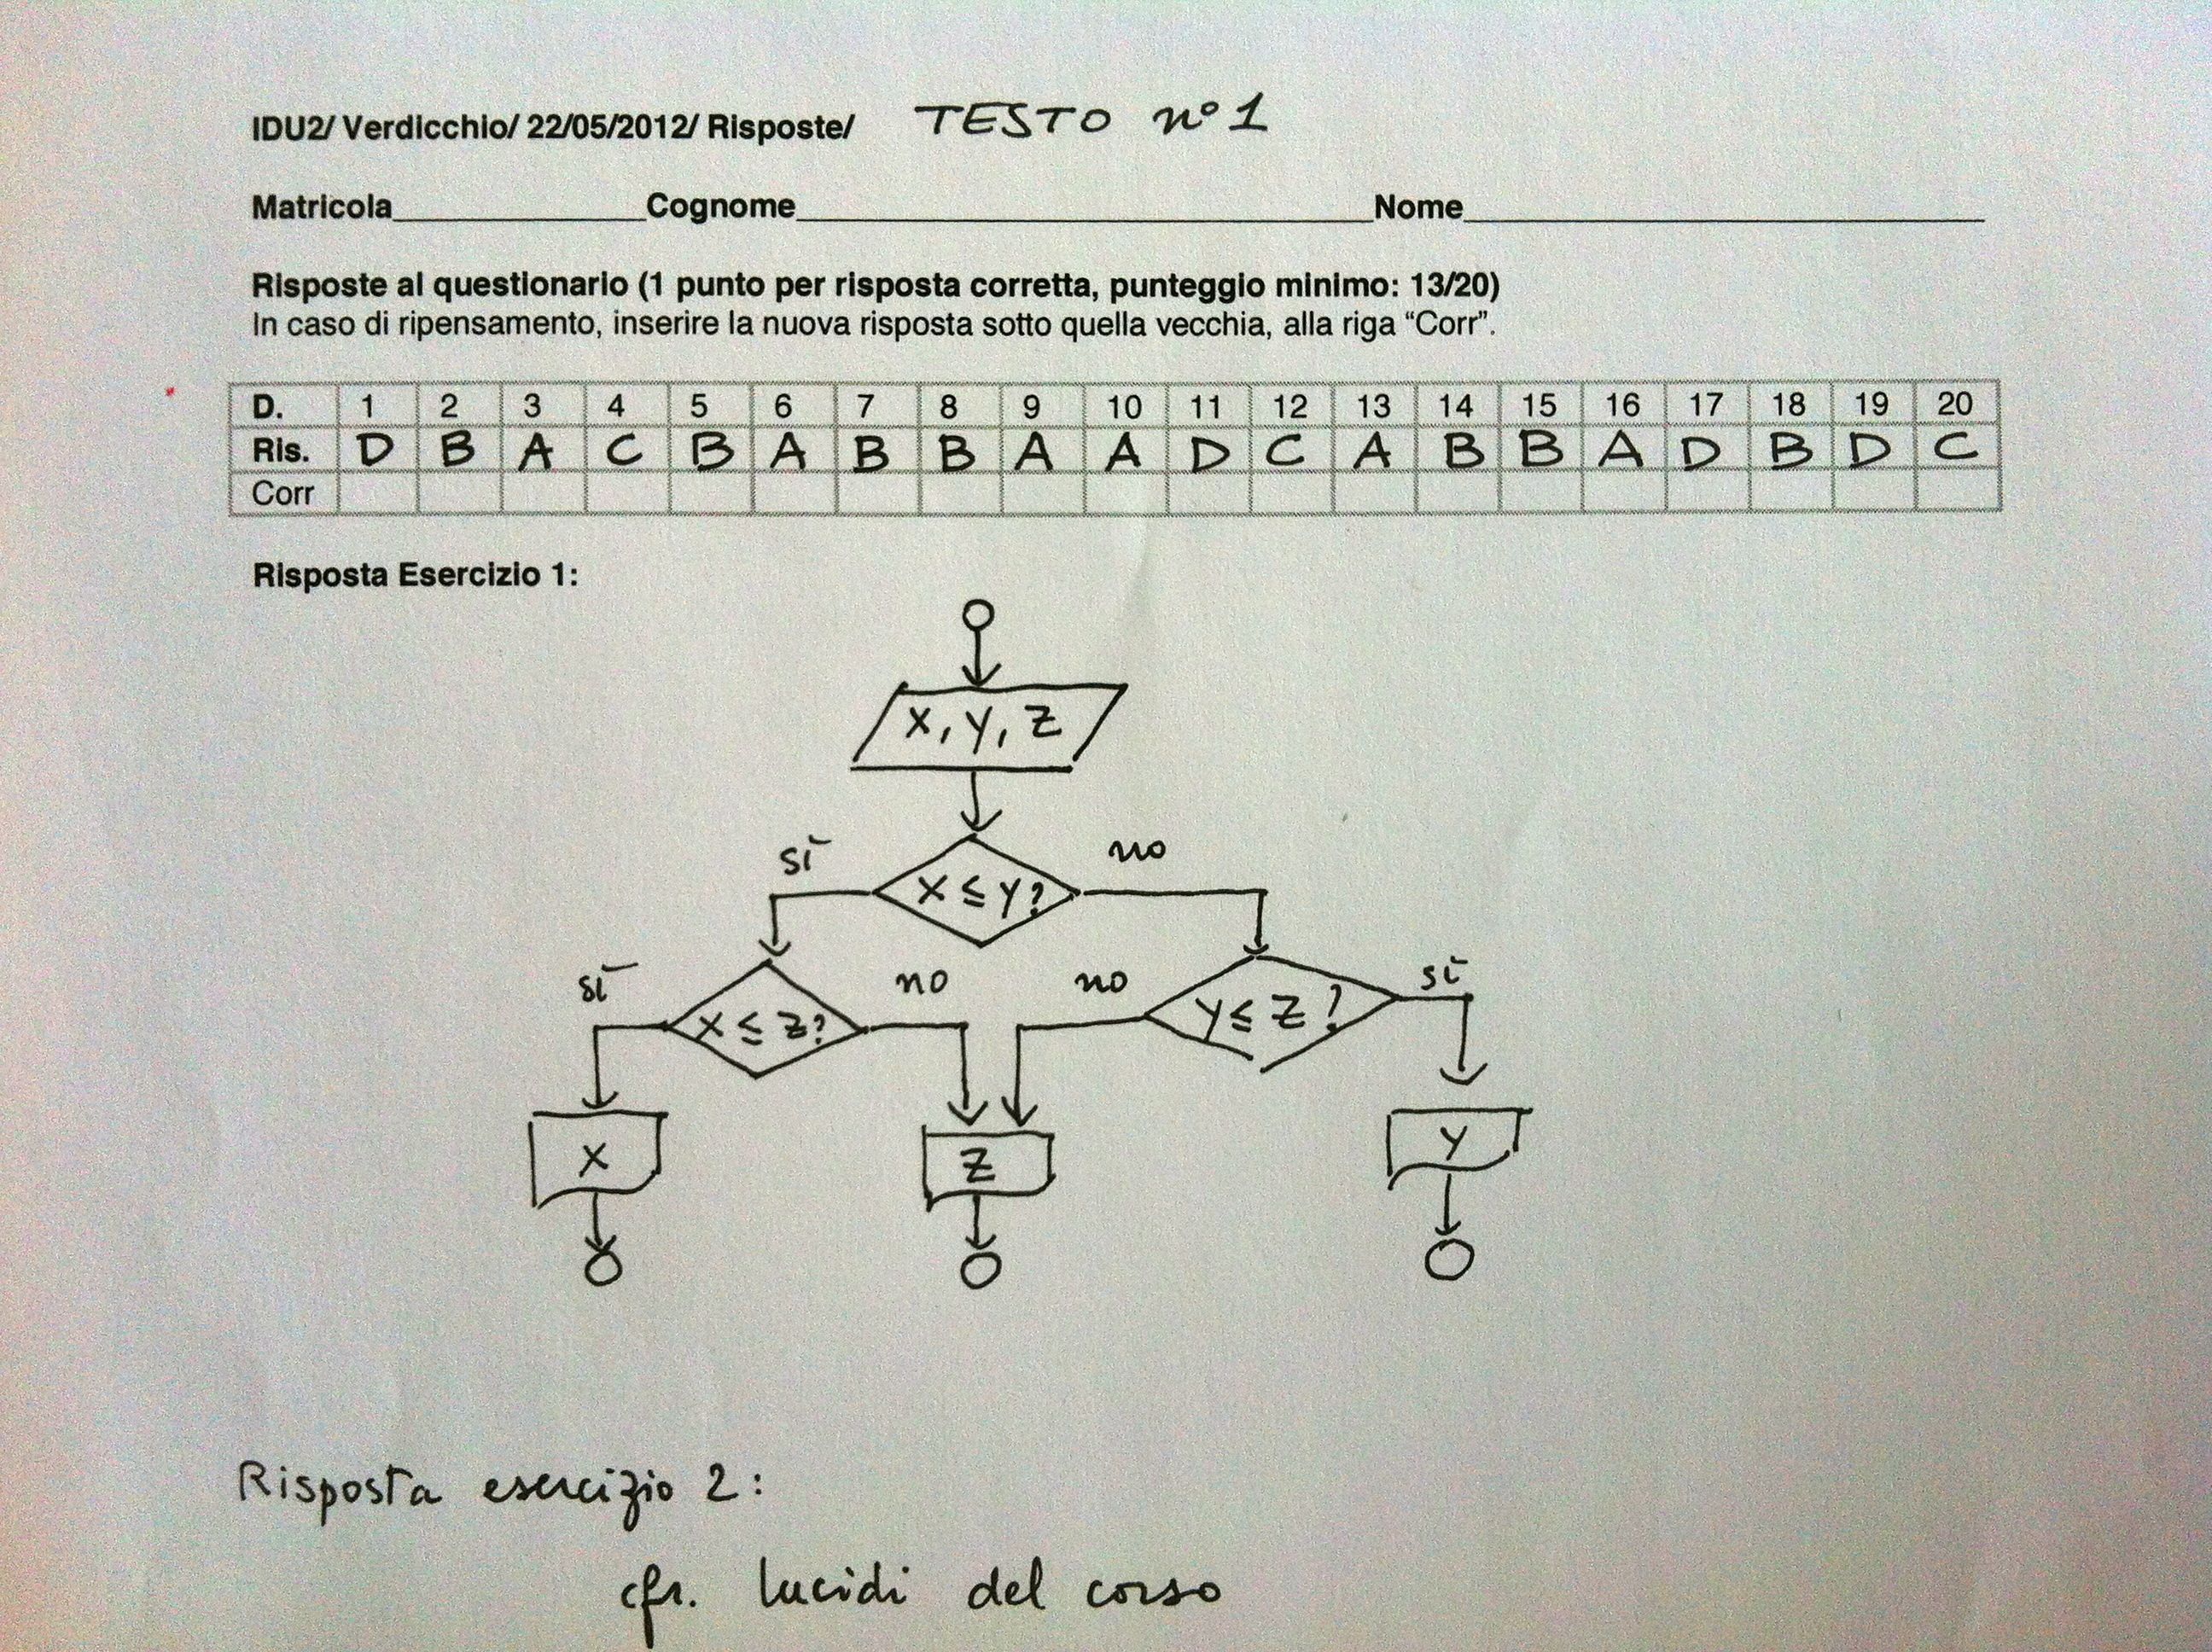 IDU2/ Verdicchio/ 22/05/2012/ Risposte/ TESTO n°1
Matricola____________Cognome____________________________Nome__________________________
Risposte al questionario (1 punto per risposta corretta, punteggio minimo: 13/20)
In caso di ripensamento, inserire la nuova risposta sotto quella vecchia, alla riga “Corr”.
D. 1 2 3 4 5 6 7 8 9 10 11 12 13 14 15 16 17 18 19 20
Ris. D B A C B A B B A A D C A B B A D B D C
Corr
Risposta Esercizio 1:
X, Y, Z
sì X ≤ Y? no
sì X ≤ Z? no no Y ≤ Z? sì
X Z Y
Risposta esercizio 2:
cfr. lucidi del corso